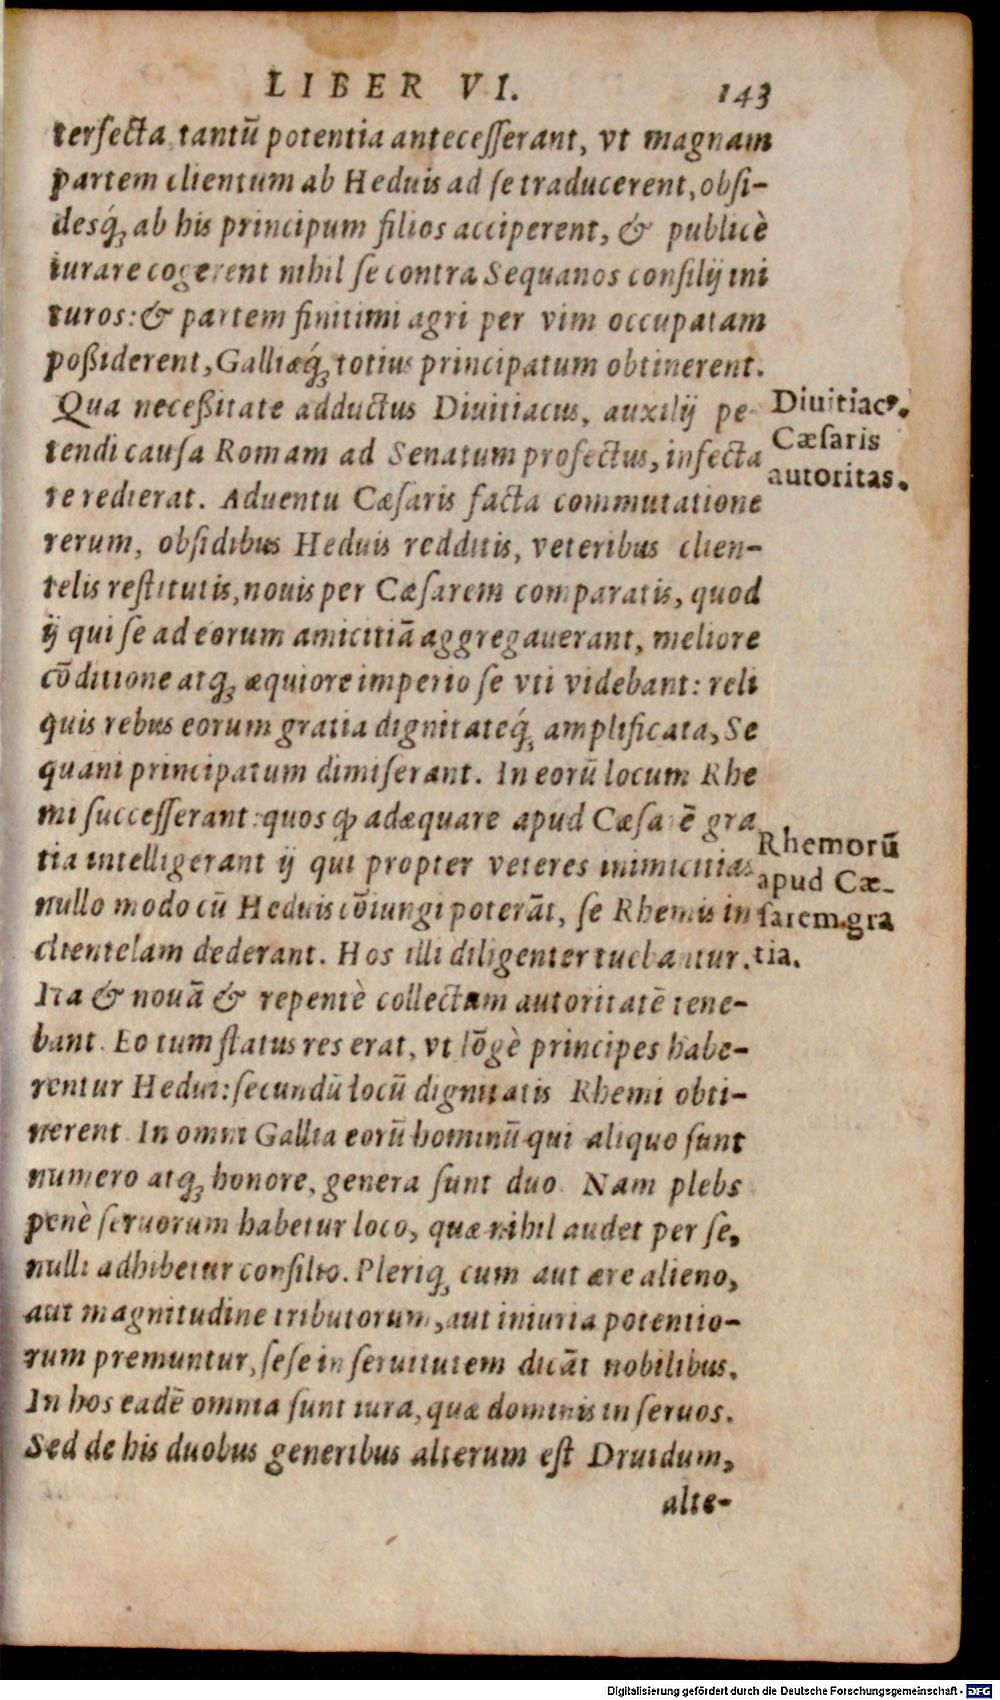 LIBER VI. 143
terfecta, tantũ potentia antecesserant, vt magnam
partem clientum ab Heduis ad se traducerent, obsi-
desq́; ab his principum filios acciperent, & publicè
iurare cogerent nihil se contra Sequanos consilij ini
turos: & partem finitimi agri per vim occupatam
poßiderent, Galliæq́; totius principatum obtinerent.
Qua neceßitate adductus Diuitiacus, auxilij pe
tendi causa Romam ad Senatum profectus, infecta
re redierat. Aduentu Cæsaris facta commutatione
rerum, obsidibus Heduis redditis, veteribus clien-
telis restitutis, nouis per Cæsarem comparatis, quod
ij qui se ad eorum amicitiã aggregauerant, meliore
cõditione atq; æquiore imperio se vti videbant: reli
quis rebus eorum gratia dignitateq́; amplificata, Se
quani principatum dimiserant. In eorũ locum Rhe
mi successerant: quos ꝙ adæquare apud Cæsarẽ gra
tia intelligerant ij qui propter veteres inimicitias
nullo modo cũ Heduis cõiungi poterãt, se Rhemis in
clientelam dederant. Hos illi diligenter tuebantur.
Ita & nouã & repentè collectam autoritatẽ tene-
bant. Eo tum status res erat, vt lõgè principes habe-
rentur Hedui: secundũ locũ dignitatis Rhemi obti-
nerent. In omni Gallia eorũ hominũ qui aliquo sunt
numero atq; honore, genera sunt duo. Nam plebs
penè seruorum habetur loco, quæ nihil audet per se,
nulli adhibetur consilio. Pleriq; cum aut ære alieno,
aut magnitudine tributorum, aut iniuria potentio-
rum premuntur, sese in seruitutem dicãt nobilibus.
In hos eadẽ omnia sunt iura, quæ dominis in seruos.
Sed de his duobus generibus alterum est Druidum,
alte-
Diuitiacꝰ.
Cæsaris
autoritas.
Rhemorũ
apud Cæ-
sarem gra
tia.
Digitalisierung gefördert durch die Deutsche Forschungsgemeinschaft - DFG